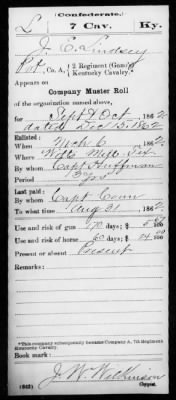 (Confederate.)
L 7 Cav. Ky.
J. E. Lindsey
Pvt, Co. A, 2 Regiment (Gano's) Kentucky Cavalry.*
Appears on
Company Muster Roll
of the organization named above,
for Sept & Oct, 1862
dated Dec 15, 1862
Enlisted:
When Mch 6, 1862
Where
By whom Capt Huffman
Period 3 Yrs
Last paid:
By whom Capt Conn
To what time Aug 31, 1862
Use and risk of gun 70 days; $ 5
Use and risk of horse 60 days; $ 24 00
Present or absent Present
Remarks:
*This company subsequently became Company A, 7th Regiment Kentucky Cavalry.
Book mark:
J. W. Wilkinson
(642) Copyist.